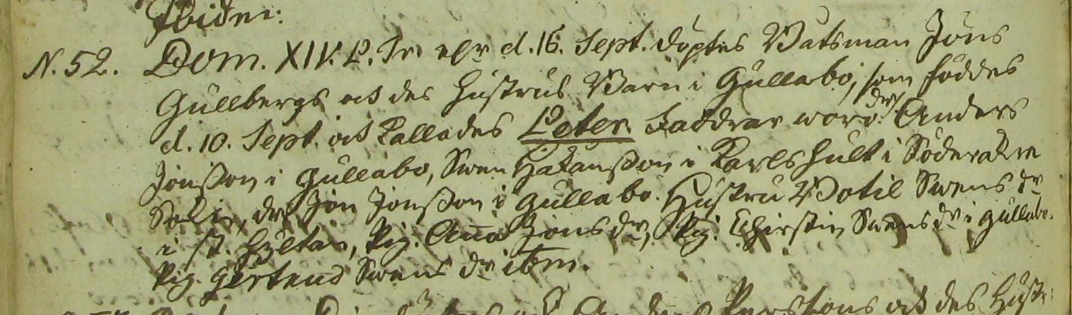 Ibidem:
N. 52. Dom. XIV. P. Tr. d. 16. Sept. döptes Båtsman Jöns
Gullbergs och des hustrus Barn i Gullabo, som föddes
d. 10. Sept. och kallades Peter. Faddrar woro dr. Anders
Jonsson i Gullabo, Swen Håkansson i Karlshult i Söderåkra
Sokn, dr. Jon Jonsson i Gullabo. Hustru Botil Swens dr
i St. Hultan, Pig. Anna Jons dr, Pig. Chirstin Swens dr i Gullabo.
Pig. Gertrud Swens dr ibm.
Perssons och des Hustr: